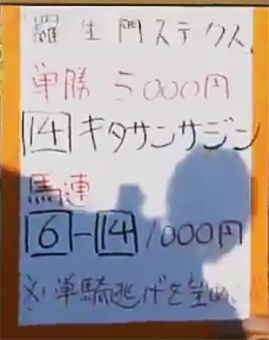 羅生門ステークス
単勝 5000円
14 キタサンサジン
馬連
6-14 1000円
※単騎逃げを望め